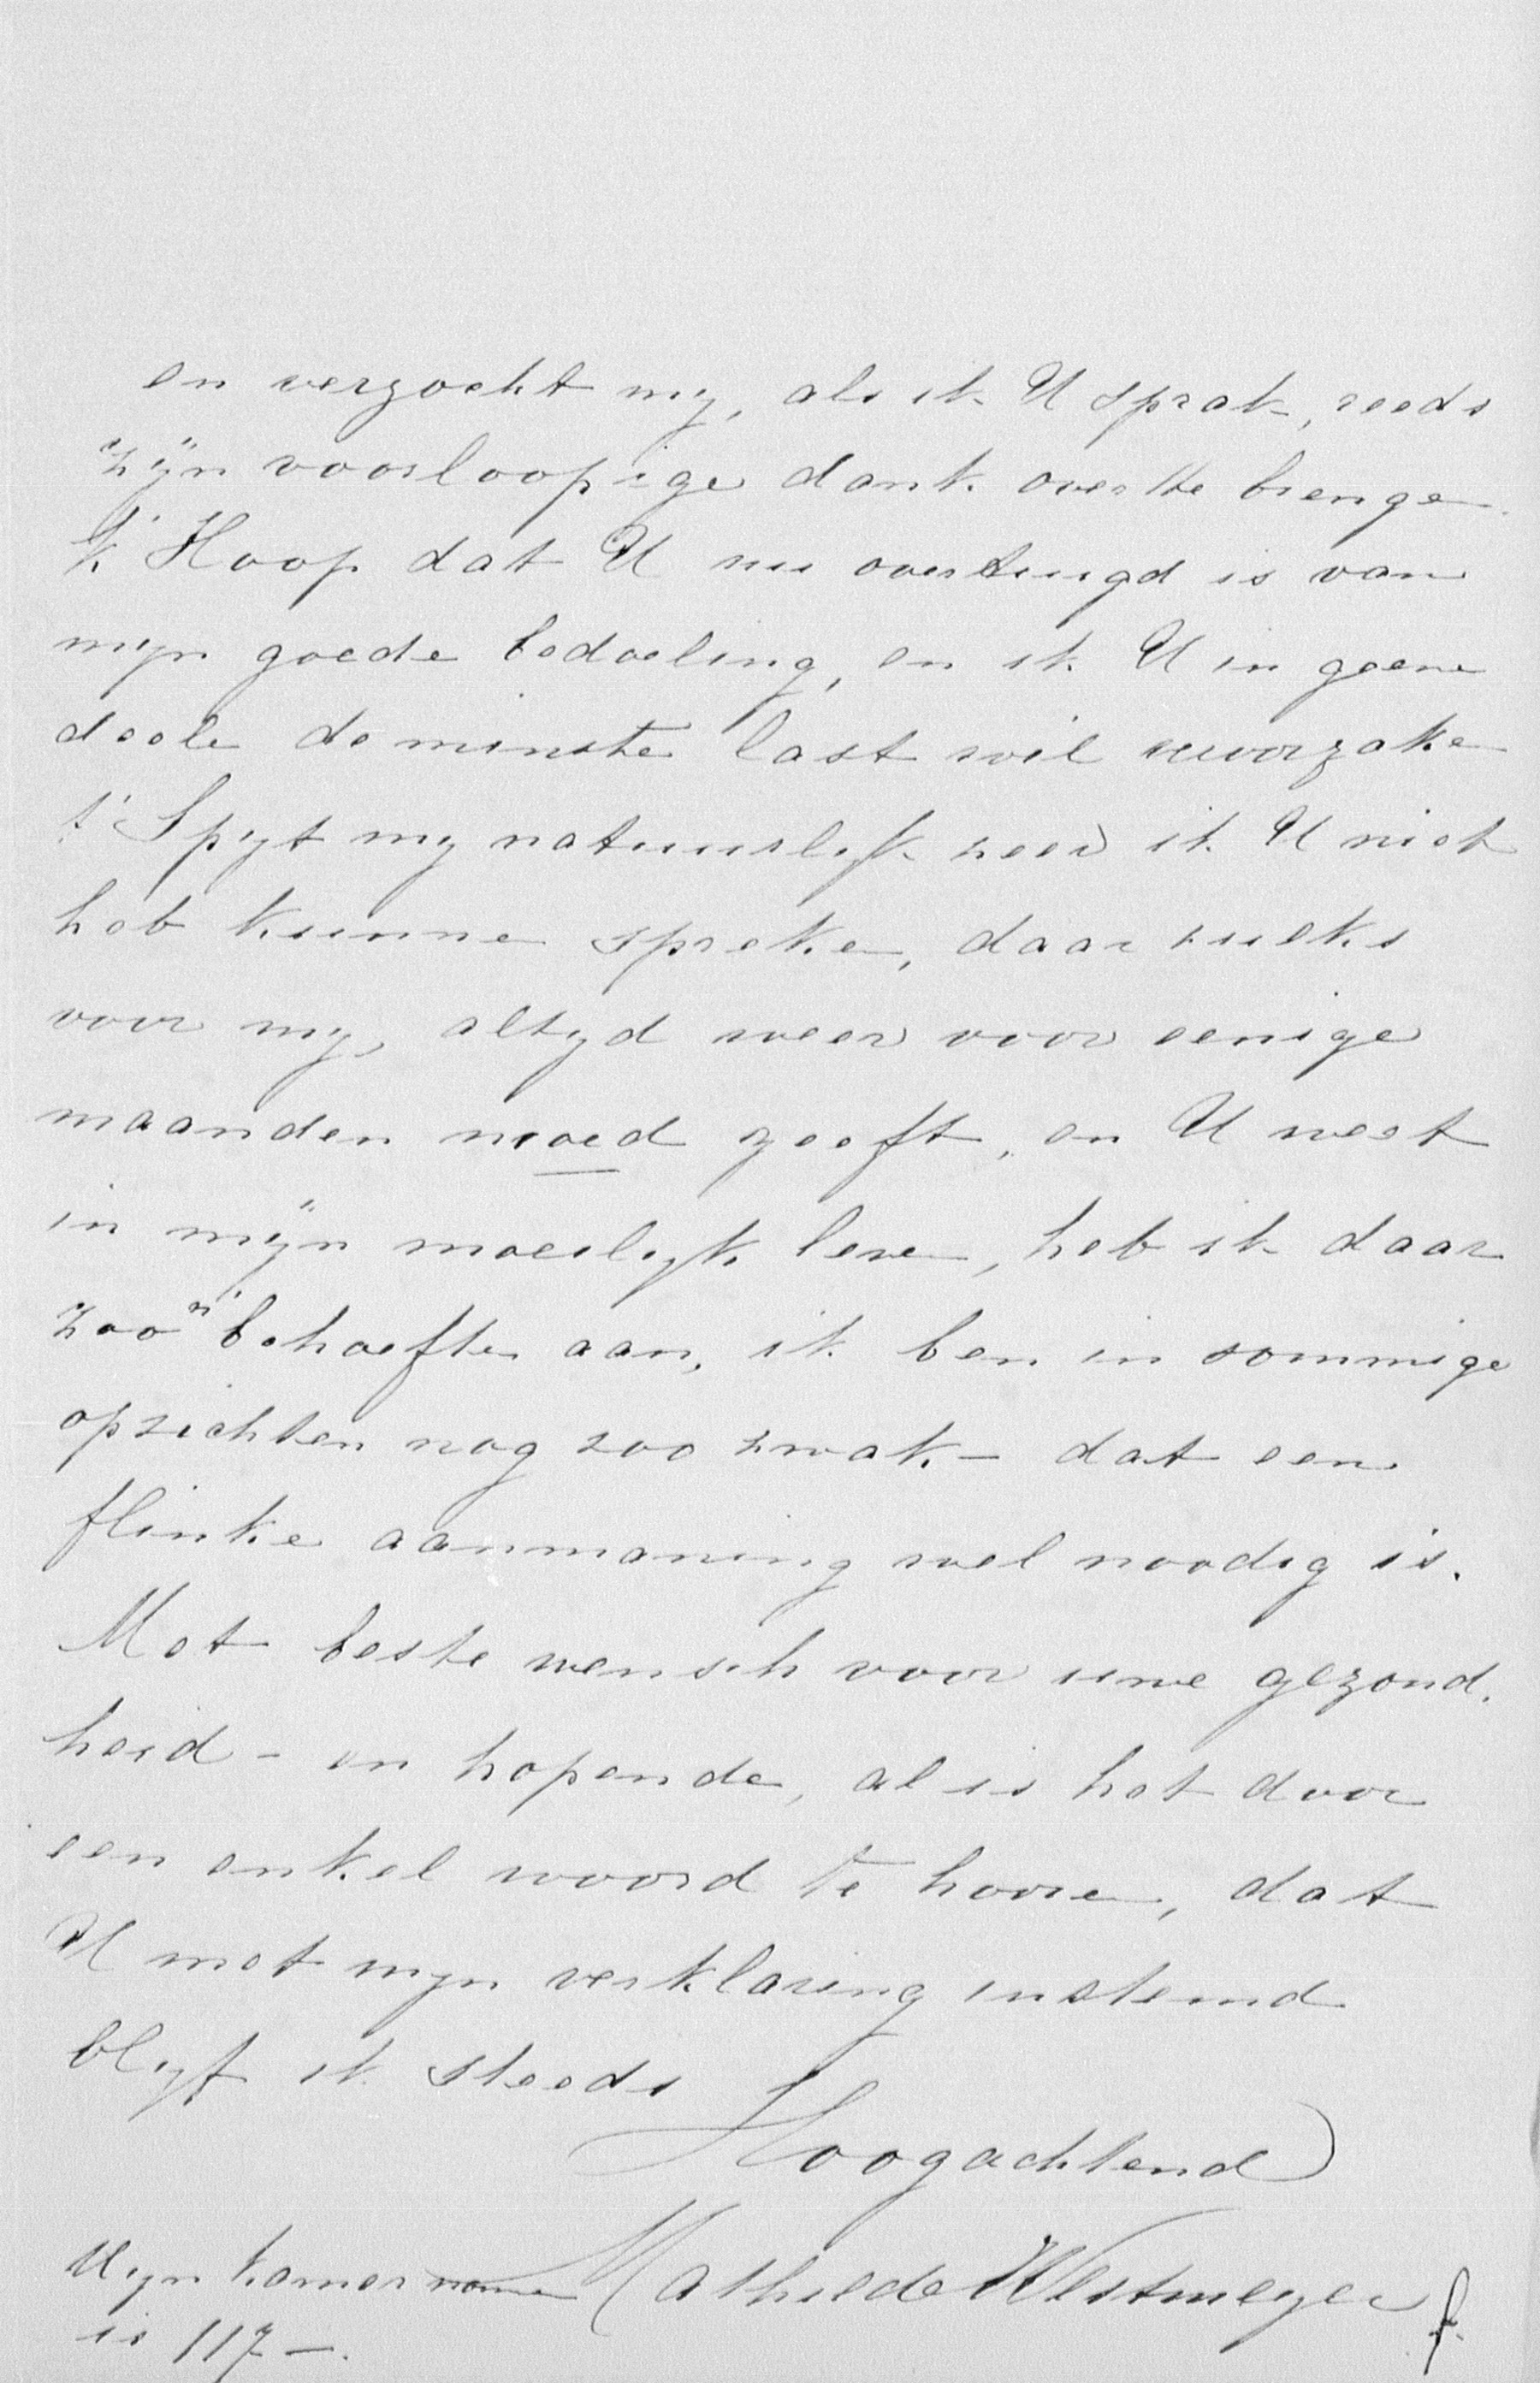 en verzocht mij, als ik U sprak, reeds
zijn voorloopige dank over te brenge.
'k Hoop dat U nu overtuigd is van
mijn goede bedoeling, en ik U in geene
deele de minste last wil veroorzake
't Spijt mij natuurlijk zeer ik U niet
heb kunne spreke, daar zulks
voor mij, altijd weer voor eenige
maanden moed geeft, en U weet
in mijn moeilijk leve, heb ik daar
zoo'n behoefte aan, ik ben in sommige
opzichten nog zoo zwak – dat een
flinke aanmaning wel noodig is.
Met beste wensch voor uwe gezond.
heid – en hopende, al is het door
een enkel woord te hoore, dat
U met mijn verklaring instemd
blijf ik steeds
Hoogachtend
Mathilde Westmeyer
Mijn kamer
is 117 –.